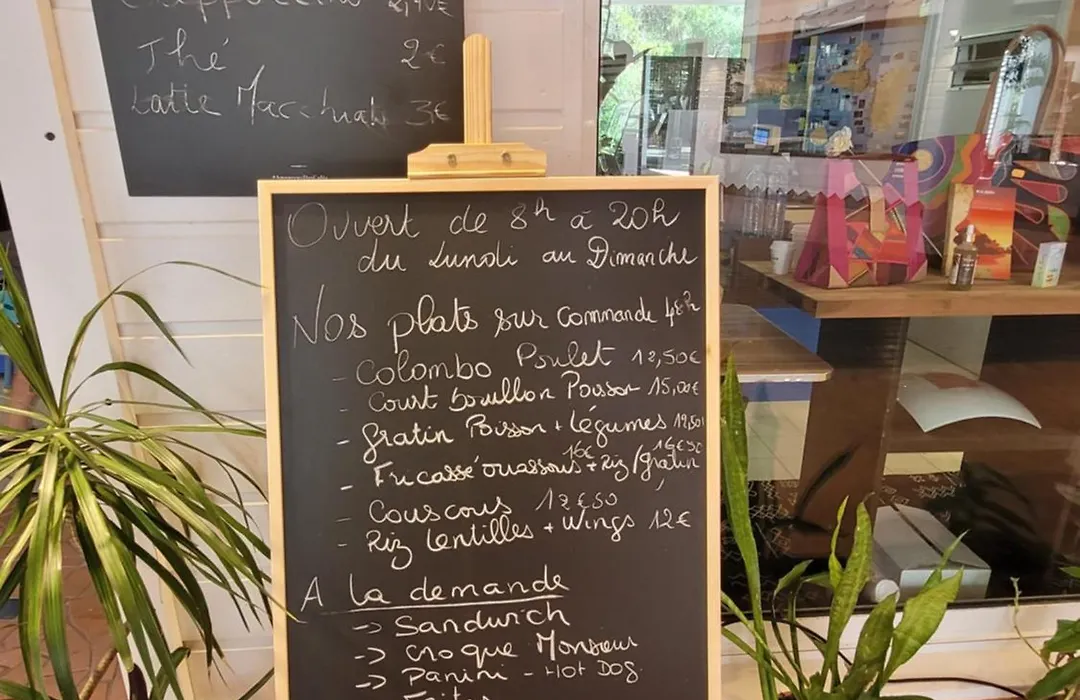 2,40€
Thé 2€
Latte Macchiato 3€
Ouvert de 8h à 20h
du Lundi au Dimanche
Nos plats sur commande 48h
- Colombo Poulet 12,50€
- Court bouillon Poisson 15,00€
- Gratin Poisson + Légumes
- Fricassé ouassous + Riz/gratin
16€ 16€50
- Couscous 12€50
- Riz Lentilles + Wings 12€
A la demande
-> Sandwich
-> Croque Monsieur
-> Panini - HOT DOG